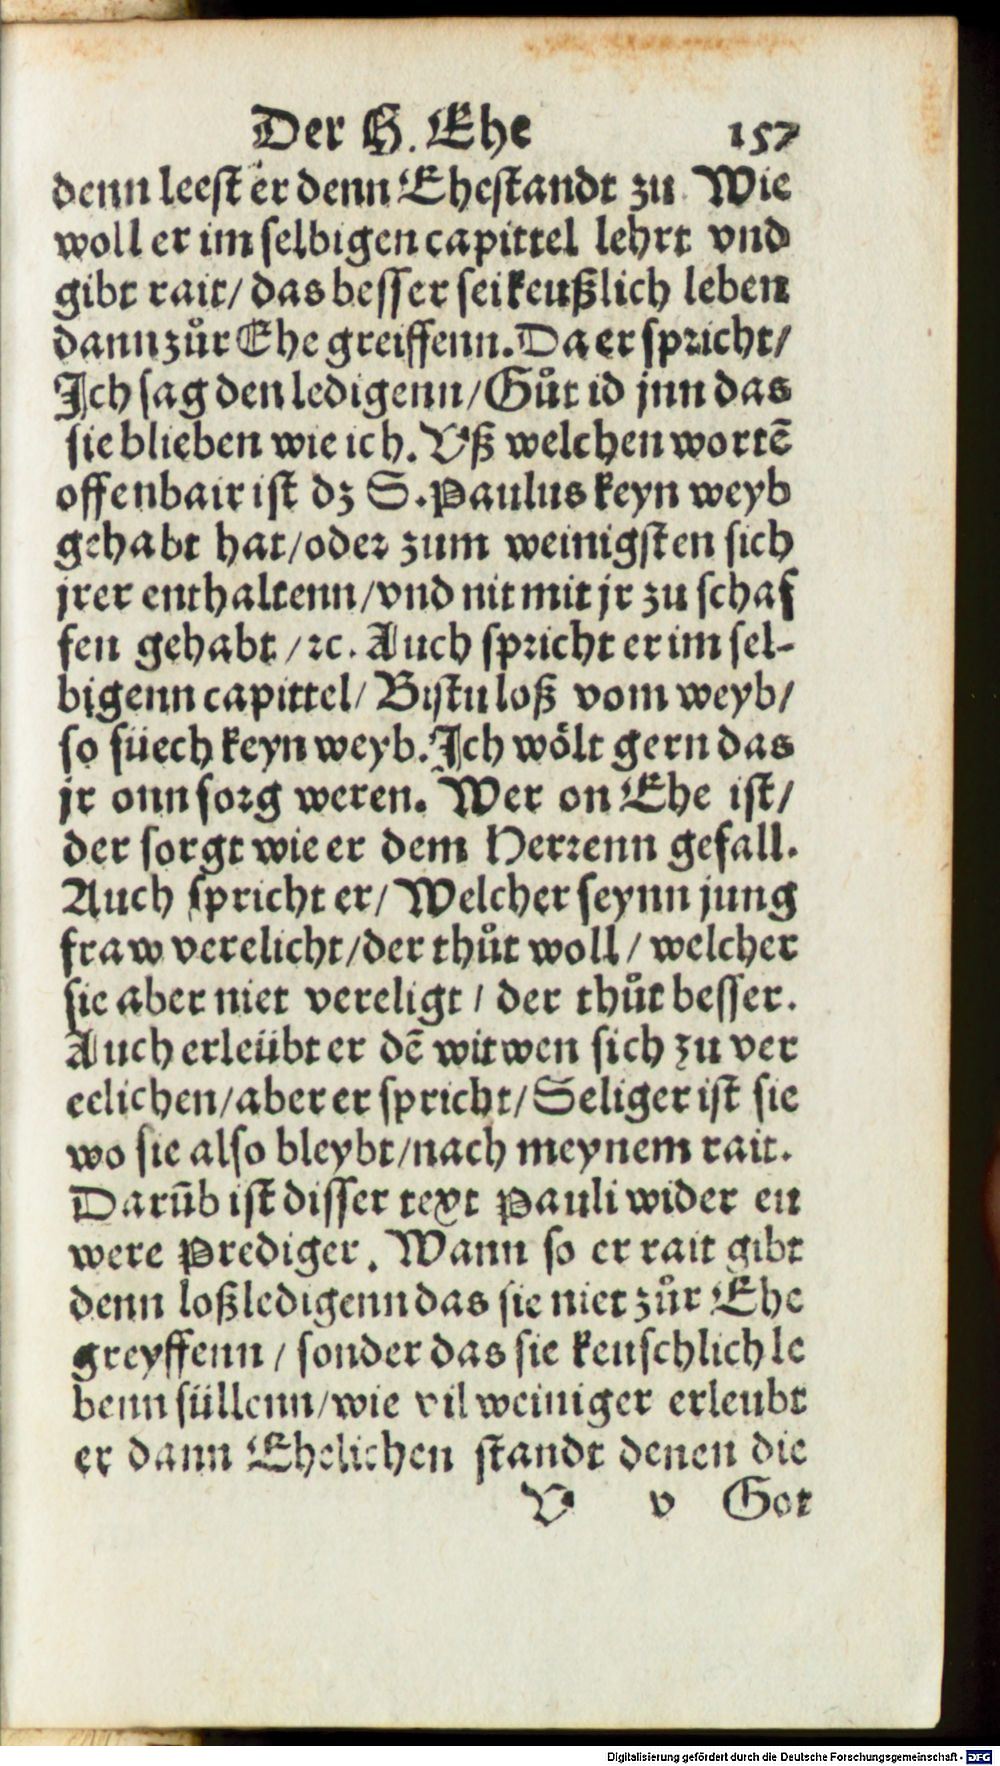 Der H. Ehe 157
denn leest er denn Ehestandt zu. Wie
woll er im selbigen capittel lehrt vnd
gibt rait/ das besser sei keußlich leben
dann zůr Ehe greiffenn. Da er spricht/
Ich sag den ledigenn/ Gůt id jnn das
sie blieben wie ich. Vß welchen wortē
offenbair ist dz S. Paulus keyn weyb
gehabt hat/ oder zum weinigsten sich
jrer enthaltenn/ vnd nit mit jr zu schaf
fen gehabt/ ꝛc. Auch spricht er im sel-
bigenn capittel/ Bistu loß vom weyb/
so süech keyn weyb. Ich wölt gern das
jr onn sorg weren. Wer on Ehe ist/
der sorgt wie er dem Herrenn gefall.
Auch spricht er/ Welcher seynn jung
fraw verelicht/ der thůt woll/ welcher
sie aber niet vereligt/ der thůt besser.
Auch erleübt er dē witwen sich zu ver
eelichen/ aber er spricht/ Seliger ist sie
wo sie also bleybt/ nach meynem rait.
Darūb ist disser text Pauli wider eu
were Prediger. Wann so er rait gibt
denn loßledigenn das sie niet zůr Ehe
greyffenn/ sonder das sie keuschlich le
benn süllenn/ wie vil weiniger erleubt
er dann Ehelichen standt denen die
V v Got
Digitalisierung gefördert durch die Deutsche Forschungsgemeinschaft - DFG